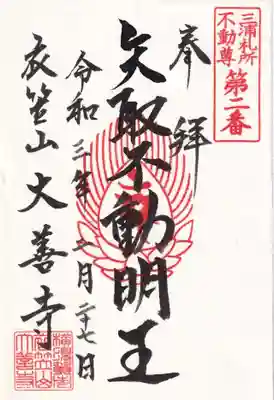 三浦札所
不動尊
第二番
奉拝
矢取不動明王
令和三年六月二十七日
衣笠山大善寺